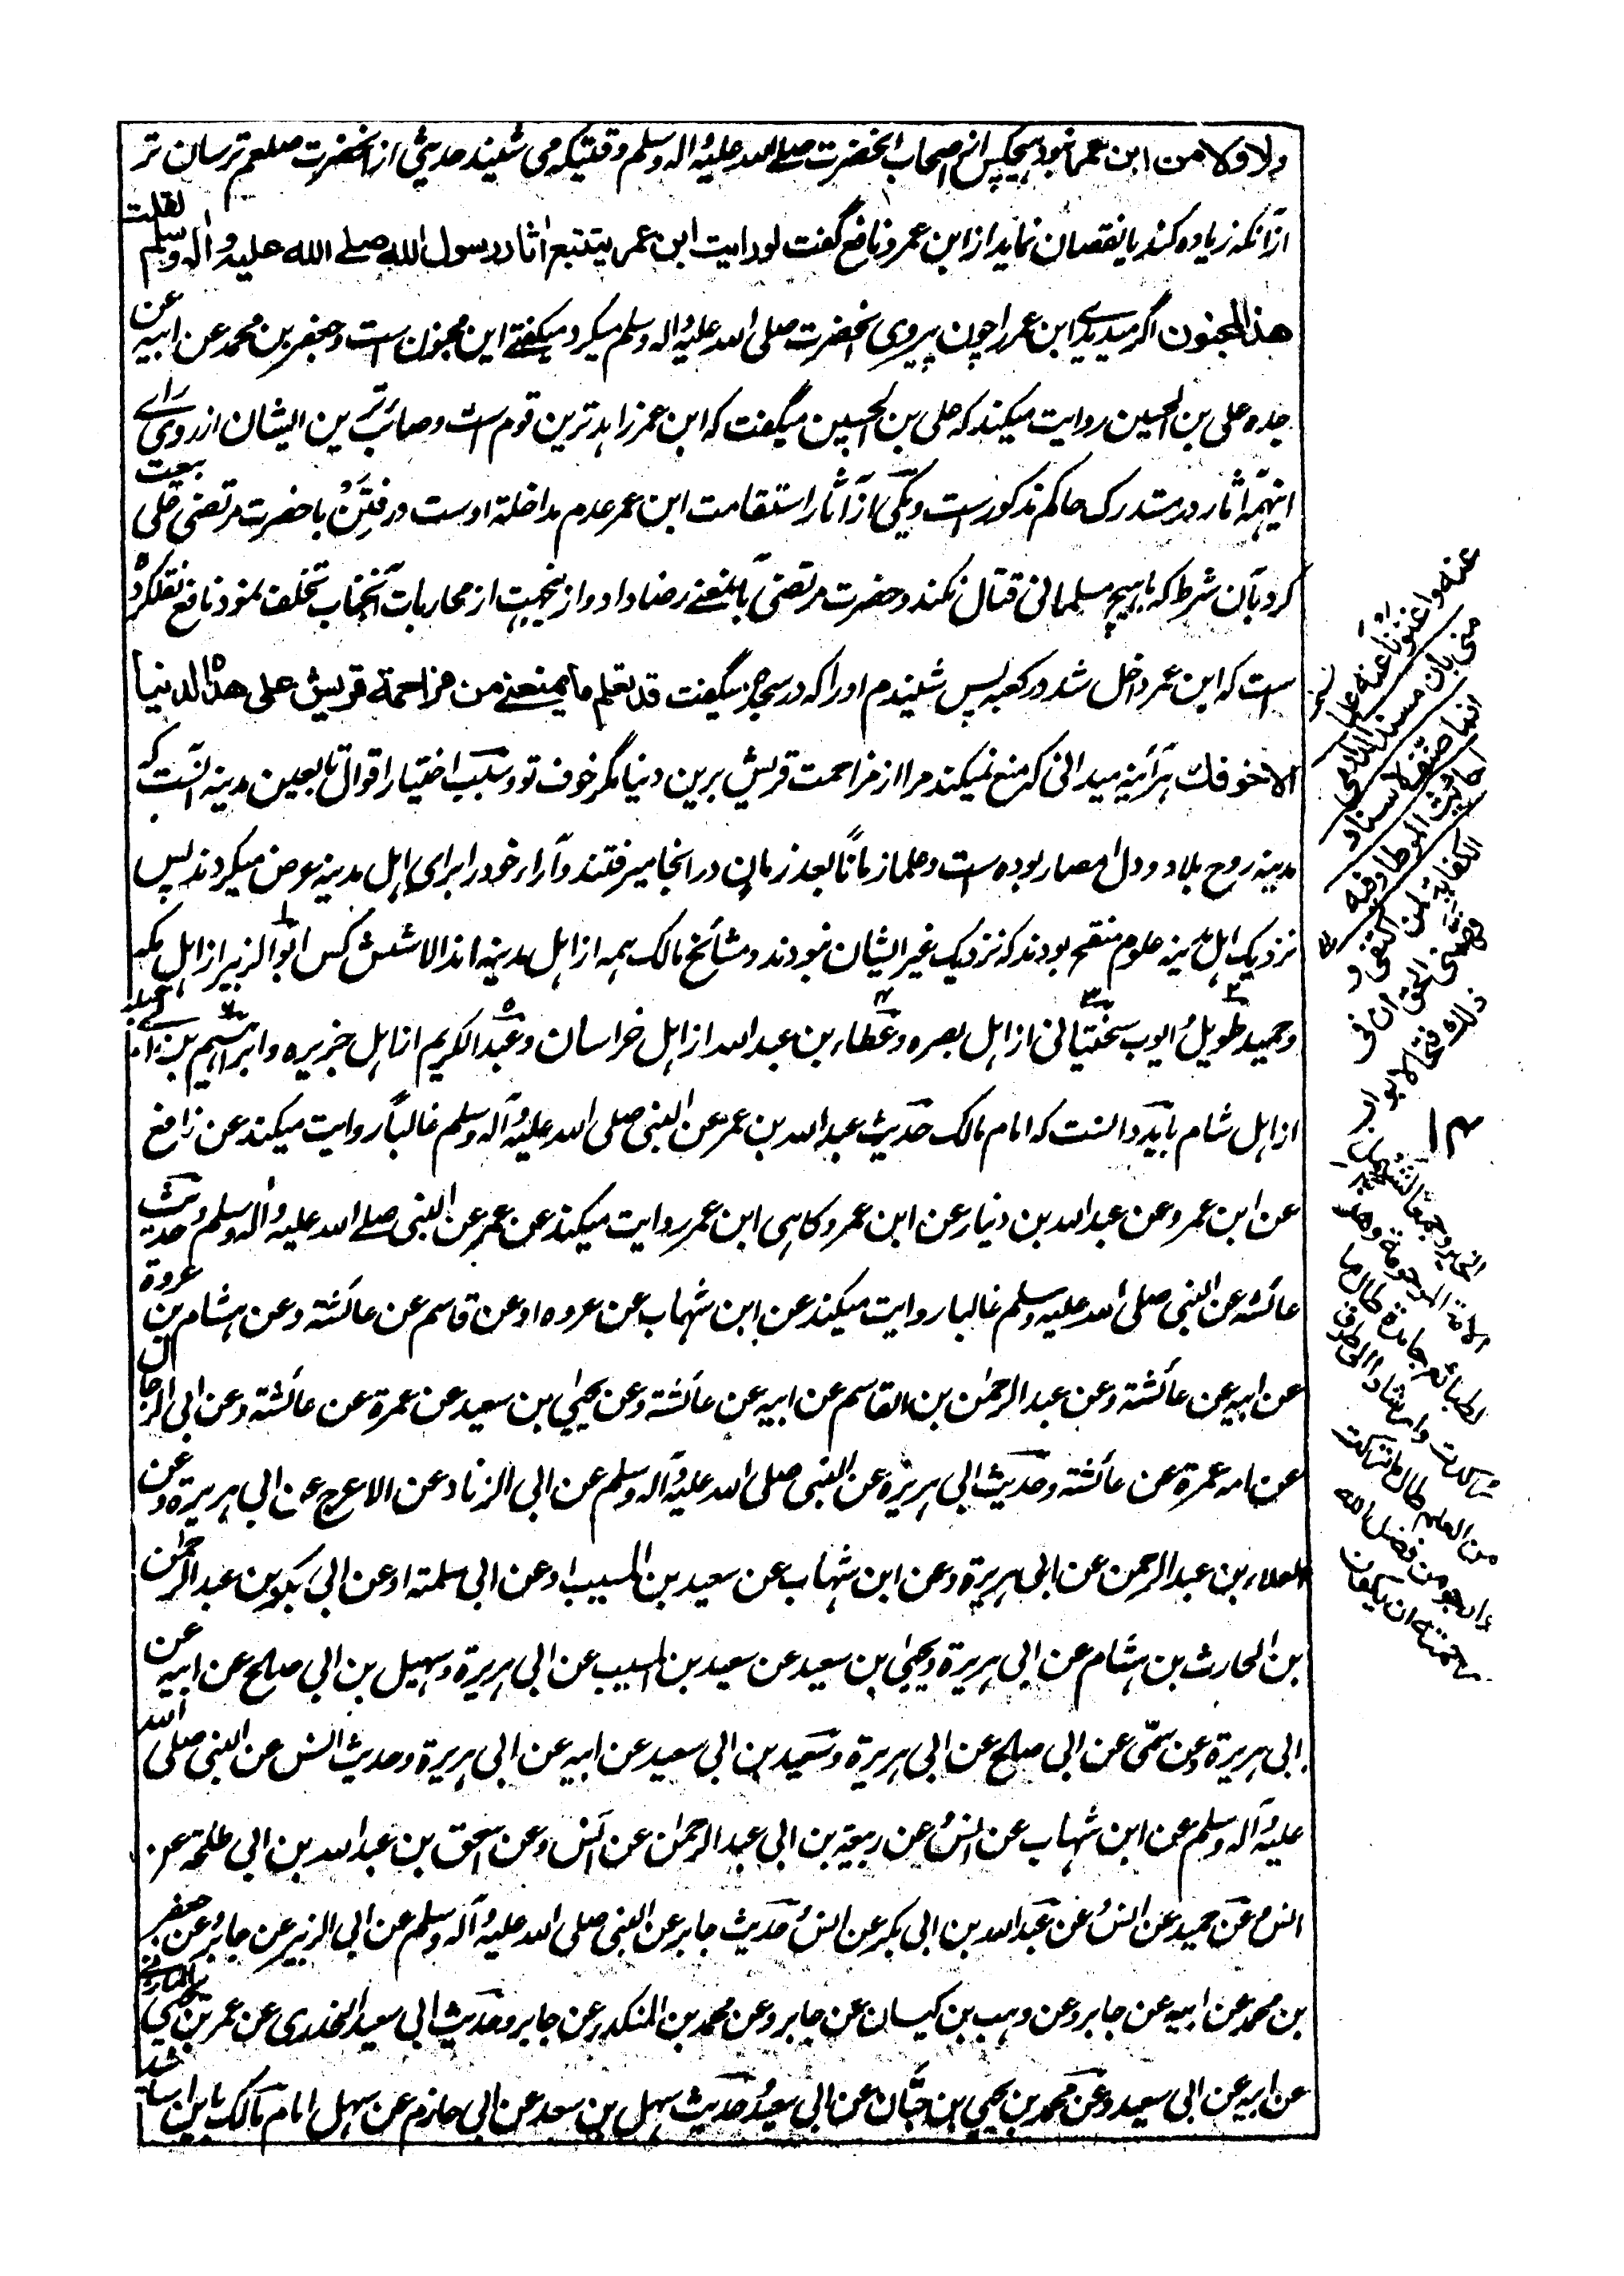 ولا ولا من ابن عمر نبود هیچکس از اصحاب آنحضرت صلے الله علیه واله وسلم وقتیکه می شنیند حدیثی از آنحضرت صلعم ترسان تر
ازآنکه زیاده کند یا نقصان نماید از ابن عمر ونافع گفت لورایت ابن عمر یتتبع اثار رسول الله صلے الله علیه واله وسلم لقلت
هذا المجنون اگر میدیدے ابن عمر را چون پیروی آنحضرت صلی الله علیه واله وسلم میکرد میگفتے این مجنون است وجعفر بن محمد عن ابیه عن
جده علی بن الحسین روایت میکند که علی بن الحسین میگفت که ابن عمر زاهد ترین قوم است وصائب ترین ایشان ازروی رای
اینهمه اثار در مستدرک حاکم مذکور است ویکی از آثار استقامت ابن عمر عدم مداخلة اوست در فتن و با حضرت مرتضی علی بیعت
کرد بآن شرط که با هیچ مسلمانی قتال نکند وحضرت مرتضی باینمعنے رضا داد وازینجهت از محاربات آنجناب تخلف نمود نافع نقلکرده
است که ابن عمر داخل شد در کعبه پس شنیدم اورا که در سجده میگفت قد تعلم ما یمنعنی من مزاحمة قریش علی هذه الدنیا
الا خوفك هرآئینه میدانی که منع نمیکند مرا از مزاحمت قریش برین دنیا مگر خوف تو وسبب اختیار اقوال تابعین مدینه آنست که
مدینه روح بلاد ودل امصار بوده است وعلما زمانًا بعد زمان در آنجا میرفتند وآراء خود را برای اهل مدینه عرض میکردند پس
نزدیک اهل مدینه علوم منقح بودند که نزدیک غیر ایشان نبودند ومشائخ مالک همه از اهل مدینه اند الا شش کس ابو الزبیر از اهل مکه
وحمید طویل وایوب سختیانی از اهل بصره وعطاء بن عبد الله از اهل خراسان وعبد الکریم از اهل جزیره وابراهیم بن ابی عبلة
از اهل شام باید دانست که امام مالک حدیث عبد الله بن عمر عن النبی صلی الله علیه وآله وسلم غالبًا روایت میکند عن نافع
عن ابن عمر وعن عبد الله بن دینار عن ابن عمر وکاهی ابن عمر روایت میکند عن عمر عن النبی صلے الله علیه واله وسلم وحدیث
عائشه عن النبی صلی الله علیه وسلم غالبا روایت میکند عن ابن شهاب عن عروه او عن قاسم عن عائشة وعن هشام بن عروة
عن ابیه عن عائشة وعن عبد الرحمن بن القاسم عن ابیه عن عائشة وعن یحیی بن سعید عن عمرة عن عائشة وعن ابی الرجال
عن امه عمرة عن عائشة وحدیث ابی هریره عن النبی صلی الله علیه وآله وسلم عن ابی الزناد عن الاعرج عن ابی هریره وعن
العلاء بن عبد الرحمن عن ابی هریرة وعن ابن شهاب عن سعید بن المسیب او عن ابی سلمة او عن ابی بکر بن عبد الرحمن
بن الحارث بن هشام عن ابی هریرة ویحیی بن سعید عن سعید بن المسیب عن ابی هریرة وسهیل بن ابی صالح عن ابیه عن
ابی هریرة وعن سمی عن ابی صالح عن ابی هریرة وسعید بن ابی سعید عن ابیه عن ابی هریرة وحدیث انس عن النبی صلی الله
علیه وآله وسلم عن ابن شهاب عن انس وعن ربیعة بن ابی عبد الرحمن عن انس وعن اسحق بن عبد الله بن ابی طلحة عن
انس وعن حمید عن انس وعن عبد الله بن ابی بکر عن انس وحدیث جابر عن النبی صلی الله علیه وآله وسلم عن ابی الزبیر عن جابر وعن جعفر
بن محمد عن ابیه عن جابر وعن وهب بن کیسان عن جابر وعن محمد بن المنکدر عن جابر وحدیث ابی سعید الخدری عن عمر بن یحیی المازنی
عن ابیه عن ابی سعید وعن محمد بن یحیی بن حبان عن ابی سعید وحدیث سهل بن سعد عن ابی حازم عن سهل امام مالک باین
متی بان مسند الدارمی
انما صنف لاسناد
احادیث الموطا وفیه
الکفایة لمن اکتفی
۱۳
من العلم
وارجو من فضل الله